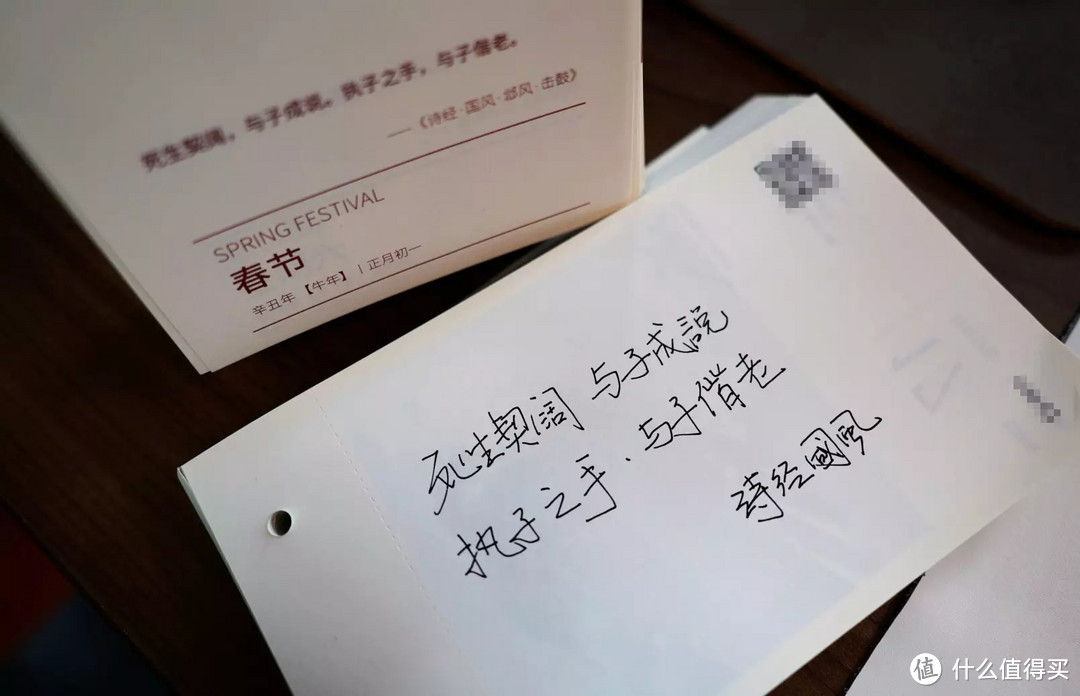 死生契阔，与子成说。执子之手，与子偕老。
——《诗经·国风·邶风·击鼓》
SPRING FESTIVAL
春节
辛丑年【牛年】丨正月初一
死生契阔 与子成説
执子之手、与子偕老
诗经國风
值 什么值得买